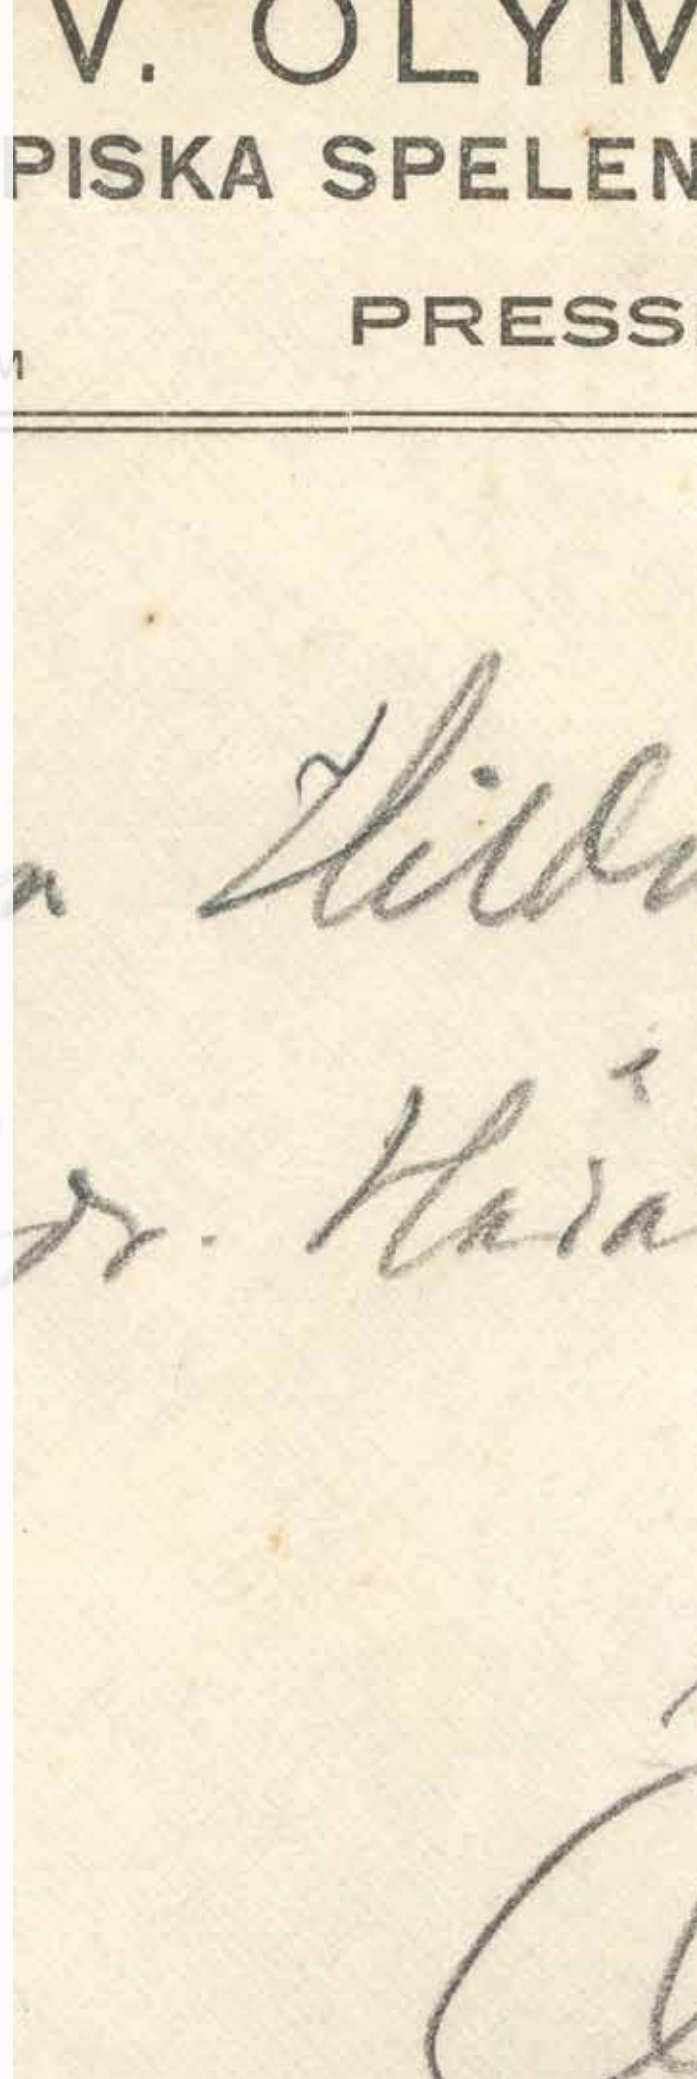 V. OLYM
PISKA SPELEN
PRESS
M
a Hilda
dr. Haia